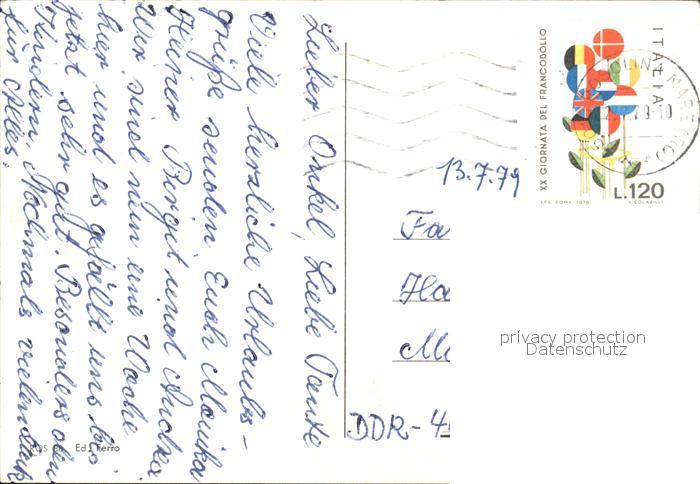 Lieber Onkel, Liebe Tante
Viele herzliche Urlaubs-
grüße senden Euch Monika
Heiner Birgit und Andrea
Wir sind nun eine Woche
hier und es gefällt uns bis
jetzt sehr gut. Besonders den
Kindern. Nochmals vielen Dank
für Alles.
13.7.79
Fa
Ha
DDR-4
XX GIORNATA DEL FRANCOBOLLO
ITALIA
L.120
I.P.S.-ROMA-1978
Ed. Ferro
privacy protection
Datenschutz